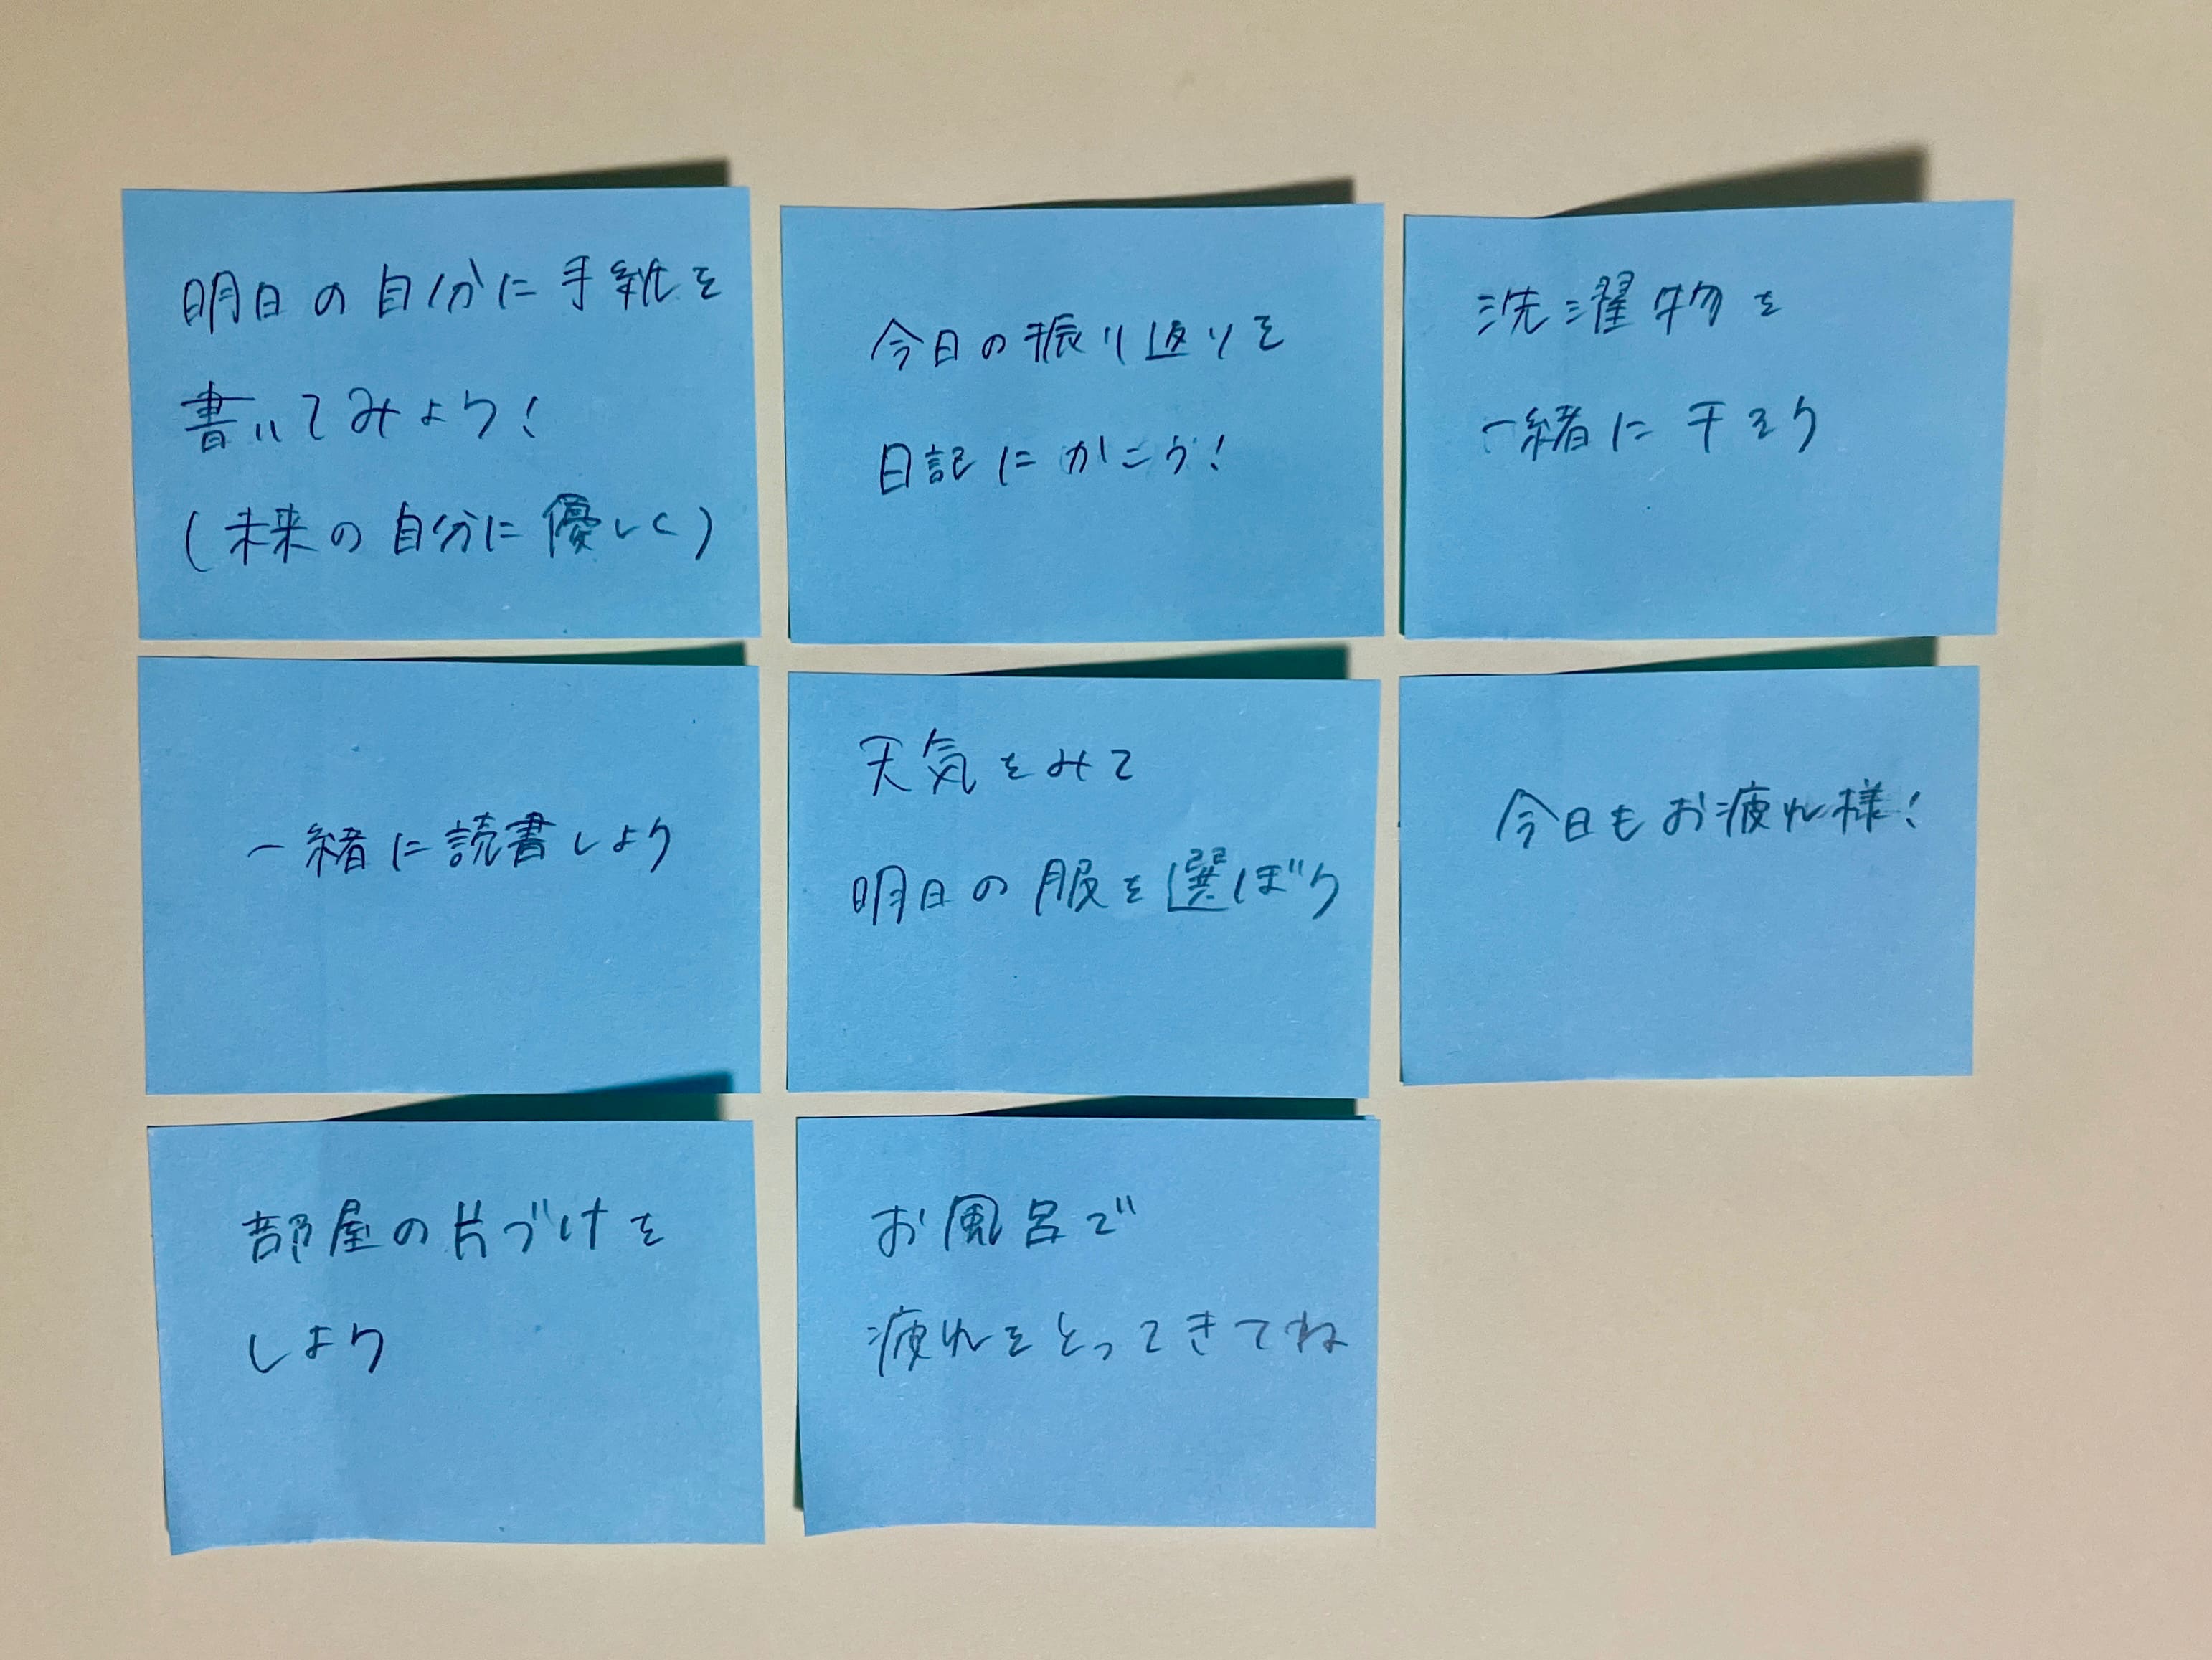 明日の自分に手紙を
書いてみよう!
(未来の自分に優しく)
今日の振り返りを
日記にかこう!
洗濯物を
一緒に干そう
一緒に読書しよう
天気をみて
明日の服を選ぼう
今日もお疲れ様!
部屋の片づけを
しよう
お風呂で
疲れをとってきてね